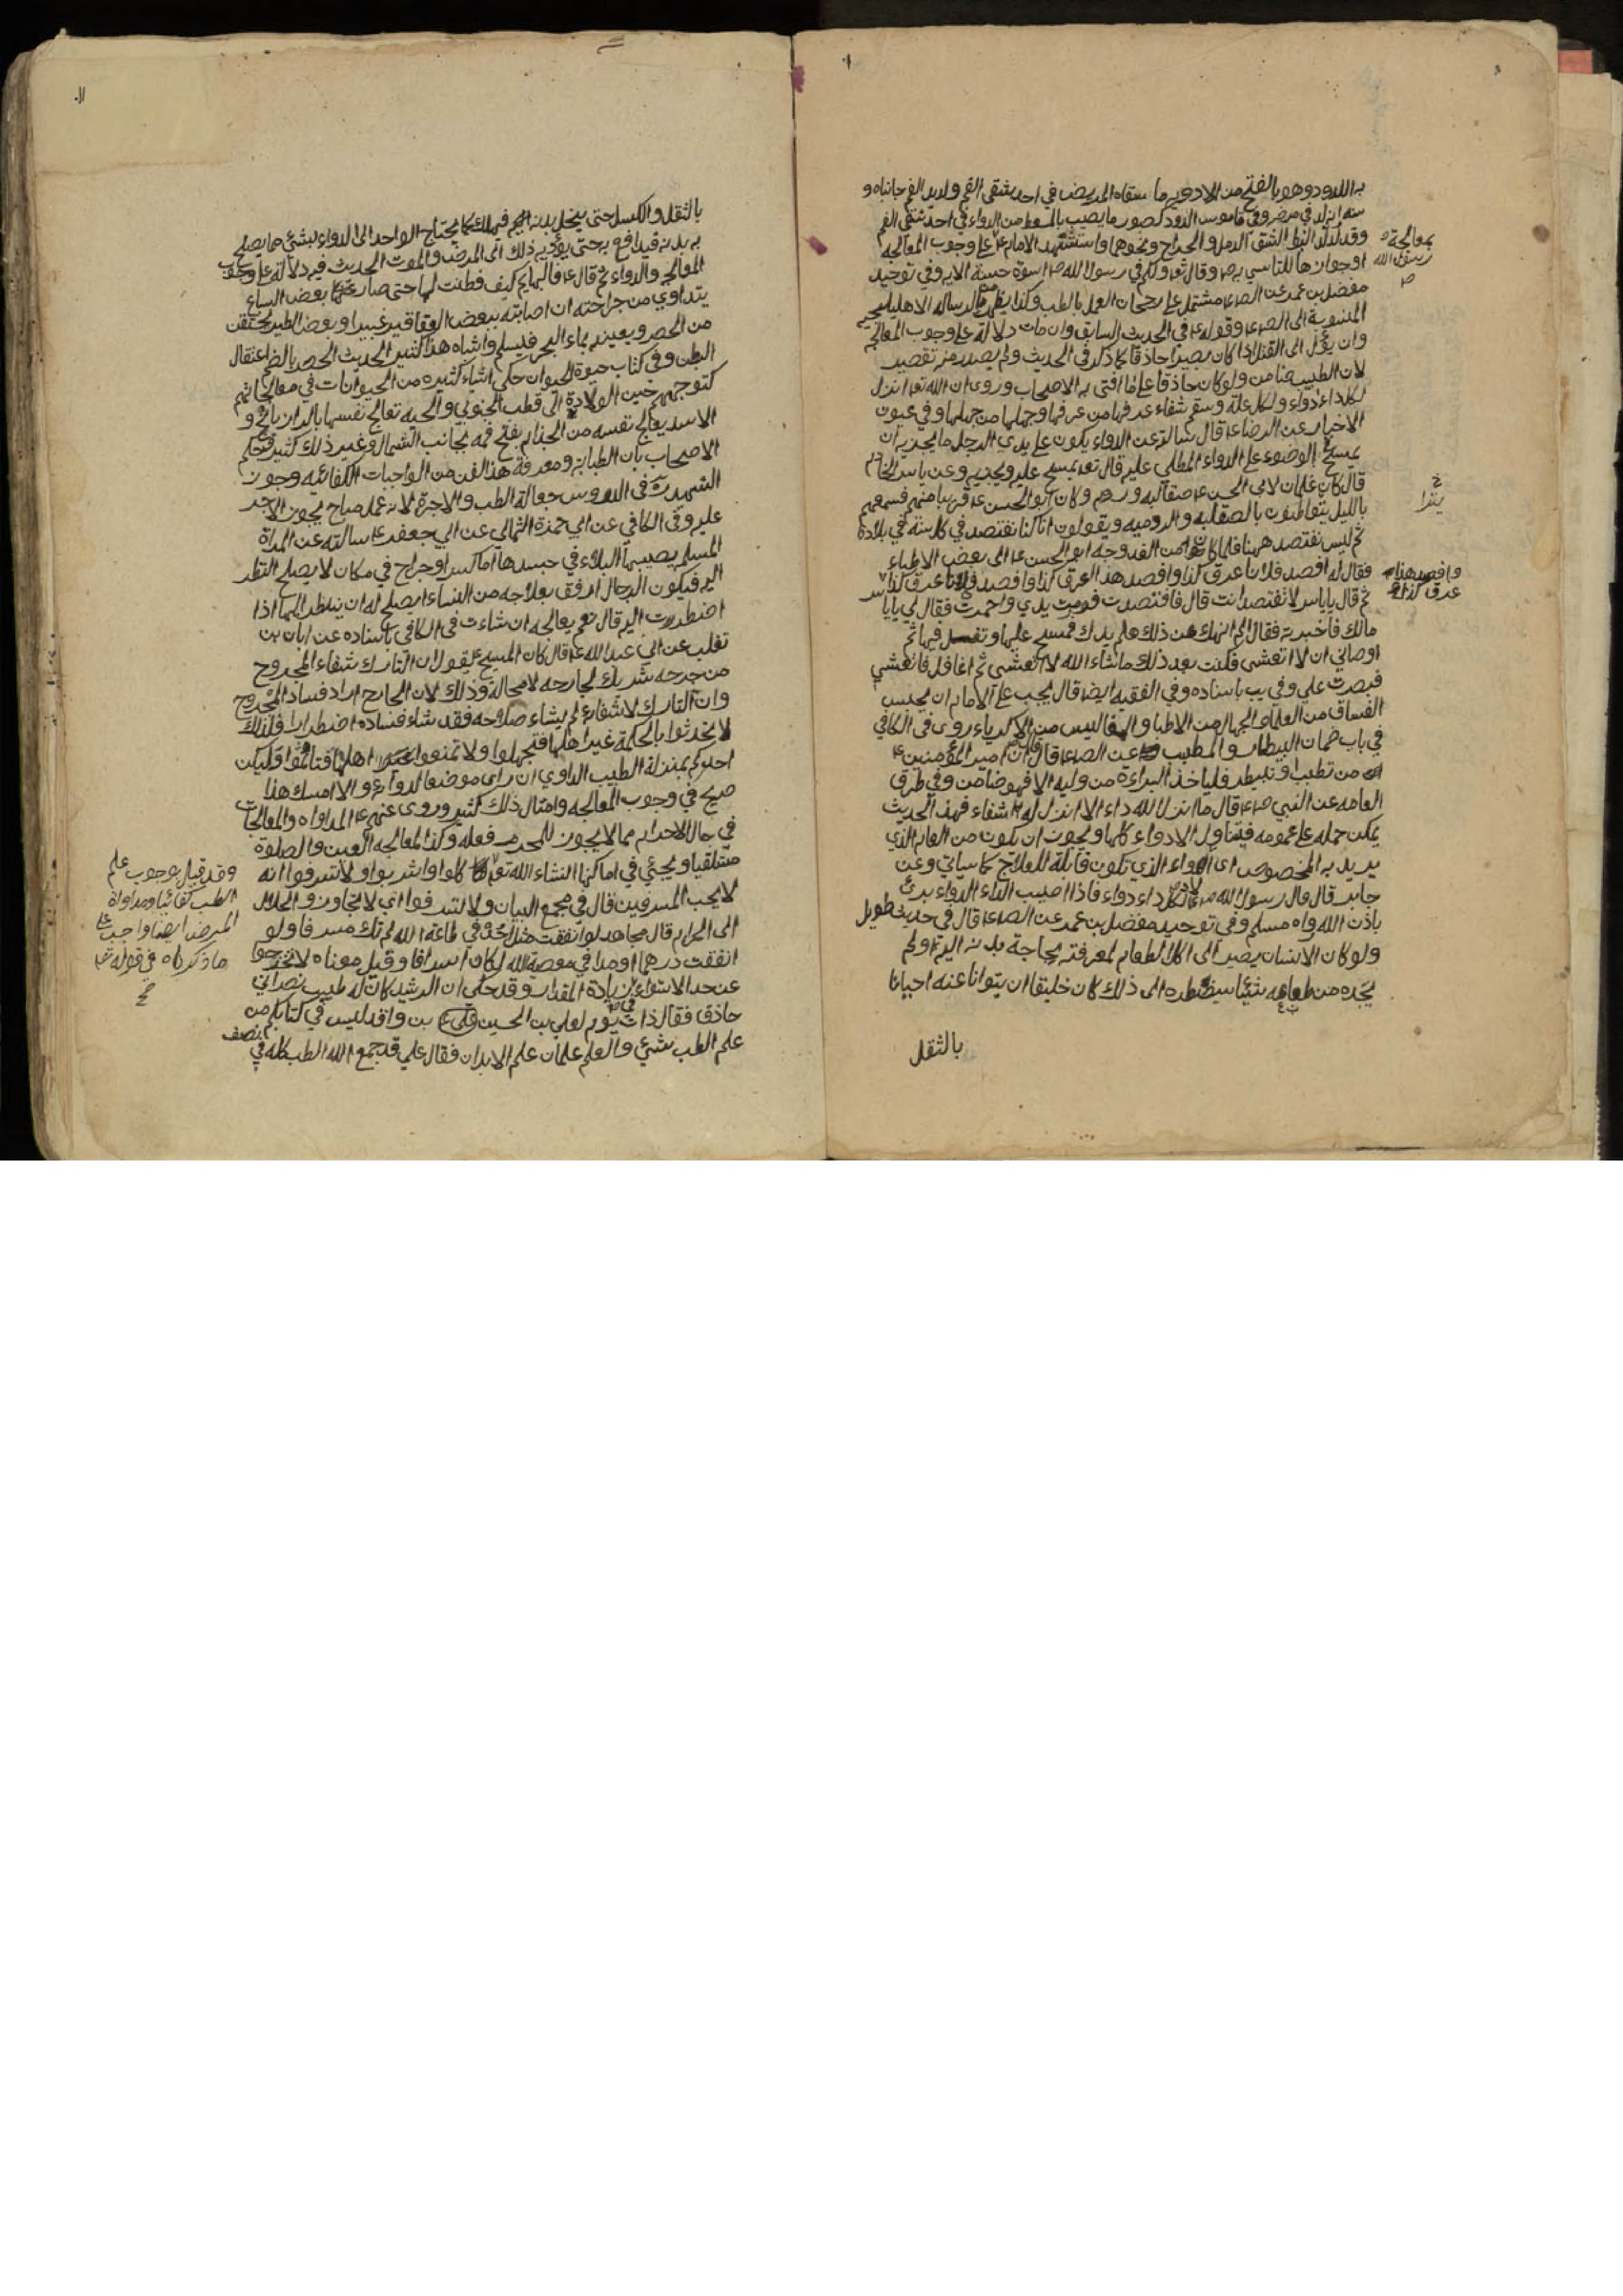 به اللدود وهو بالفتح من الادويه ما يسقاه المريض في احد شقي الفم ولديد الفم جانباه و
منه انه لد في مرضه وفي قاموس اللدود كصبور ما يصب بالمسعط من الدواء في احد شقي الفم
وقد لد البط الشق الدمل و الجراح ونحوهما واستشهد الامام ع على وجوب المعالجه
بمعالجة رسول الله ص
او جوازها للتاسي به ص وقال تع ولكم في رسول الله ص اسوة حسنة الايه وفي توحيد
مفضل بن عمر عن الص ع مشتمل على رجحان العمل بالطب وكذا يظهر من الرساله الاهليلجيه
المنسوبة الى الص ع وقوله ع في الحديث السابق وان مات دلالة على وجوب المعالجه
وان يؤل الى القتل اذا كان بصيرا حاذقا كما ذكر في الحديث ولم يصدر منه تقصير
لان الطبيب ضامن ولو كان حاذقا على ما افتى به الاصحاب وروى ان الله تع انزل
لكل داء دواء ولكل علة وسقم شفاء عرفها من عرفها وجهلها من جهلها وفي عيون
الاخبار عن الرضا ع قال سالته عن الدواء يكون على يدي الرجل ما يجزيه ان
يمسح في الوضوء على الدواء المطلي عليه قال نعم يمسح عليه ويجزيه وعن ياسر الخادم
قال كان غلمان لابي الحسن ع صقالبه وروم وكان ابو الحسن ع قريبا منهم فسمعهم
بالليل يتراطنون بالصقلبيه و الروميه ويقولون انا كنا نفتصد في كل سنة في بلادنا
ثم ليس نفتصد ههنا فلما كان من الغد وجه ابو الحسن ع الى بعض الاطباء
فقال له افصد فلانا عرق كذا وافصد هذا العرق كذا وافصد فلانا عرق كذا
وافصد هذا عرق كذا
ثم قال يا ياسر لا تفتصد انت قال فافتصدت فورمت يدي واحمرت فقال لي يا يا
مالك فاخبرته فقال الم انهك عن ذلك هلم يدك فمسح عليها وتفل فيها ثم
اوصاني ان لا اتعشى فكنت بعد ذلك ما شاء الله لا اتعشى ثم اغافل فاتعشى
فيضرب علي وفي يب باسناده وفي الفقيه ايضا قال يجب على الامام ان يحبس
الفساق من العلماء و الجهال من الاطباء و المفاليس من الاكرياء روى في الكافي
في باب ضمان البيطار و الطبيب عن الص ع قال قال امير المؤمنين ع
من تطبب او تبيطر فلياخذ البراءة من وليه والا فهو ضامن وفي طرق
العامه عن النبي ص قال ما انزل الله داء الا انزل له شفاء فهذا الحديث
يمكن حمله على عمومه فيتناول الادواء كلها ويجوز ان يكون من العام الذي
يريد به المخصوص اي الدواء الذي تكون قابلة للعلاج كما سياتي وعن
جابر قال قال رسول الله ص لكل داء دواء فاذا اصيب الداء الدواء برئ
باذن الله رواه مسلم وفي توحيد مفضل بن عمر عن الص ع قال في حديث طويل
ولو كان الانسان يصير الى اكل الطعام لمعرفته بحاجة بدنه اليه ولم
يجده من طباعه شيئا يضطره الى ذلك كان خليقا ان يتوانا عنه احيانا
بالثقل
بالثقل و الكسل حتى ينحل بدنه فيهلك كما يحتاج الواحد الى الدواء لشئ مما يصلح
به بدنه فيدافع به حتى يؤديه ذلك الى المرض و الموت الحديث فيه دلالة على وجوب
المعالجه والدواء ثم قال ع فالبهايم كيف فطنت لها حتى صار بعض السباع
يتداوي من جراحته ان اصابته ببعض العقاقير فيبرا وبعض الطير يحتقن
من الحصر ويصيبه بماء البحر فيسلم واشباه هذا كثير الحديث الحصر بالضم اعتقال
البطن وفي كتاب حيوة الحيوان حكى اشياء كثيره من الحيوانات في معالجاتهم
كتوجههم حين الولادة الى قطب الجنوبي و الحيه تعالج نفسها بالرازيانج و
الاسد يعالج نفسه من الجذام بفتح فمه بجانب الشمال وغير ذلك كثير
الاصحاب بان الطبابة ومعرفة هذا الفن من الواجبات الكفائيه وجوز
الشهيد ره في الدروس جعالة الطب و الاجرة لانه عمل مباح يجوز الاجر
عليه وفي الكافي عن ابي حمزة الثمالي عن ابي جعفر ع سالته عن المراة
المسلمه يصيبها البلاء في جسدها اما كسر او جراح في مكان لا يصلح النظر
اليه فيكون الرجال ارفق بعلاجه من النساء ايصلح له ان ينظر اليها اذا
اضطررت اليه قال نعم يعالجه ان شاءت في الكافي باسناده عن ابان بن
تغلب عن ابي عبد الله ع قال كان المسيح ع يقول ان التارك شفاء المجروح
من جرحه شريك لجارحه لا محالة وذلك لان الجارح اراد فساد المجروح
وان التارك لاشفائه لم يشاء صلاحه فقد شاء فساده اضطرارا فكذلك
لا تحدثوا بالحكمة غير اهلها فتجهلوا ولا تمنعوا اهلها فتاثموا وليكن
احدكم بمنزلة الطبيب المداوي ان راى موضعا لدوائه و الا امسك هذا
صريح في وجوب المعالجه وامثال ذلك كثير وروى عنهم ع المداواه والمعالجات
في حال الاحرام مما لا يجوز للمحرم فعله وكذا المعالجه العين والصلوة
مستلقيا ويجئي في اماكنها انشاء الله تع كلوا واشربوا ولا تسرفوا انه
لا يحب المسرفين قال في مجمع البيان ولا تسرفوا اي لا تتجاوزوا الحلال
الى الحرام قال مجاهد لو انفقت مثل احد في طاعة الله لم تك مسرفا ولو
انفقت درهما او مدا في معصية الله لكان اسرافا وقيل معناه لا تخرجوا
عن حد الاستواء في زيادة المقدار وقد حكى ان الرشيد كان له طبيب نصراني
حاذق فقال ذات يوم لعلي بن الحسين بن واقد ليس في كتابكم من
علم الطب شئ و العلم علمان علم الابدان فقال علي قد جمع الله الطب كله في نصف
وقد قيل بوجوب علم
الطب كفائيا ومداواة
المرض ايضا واجب على
ما ذكرناه في قوله تع